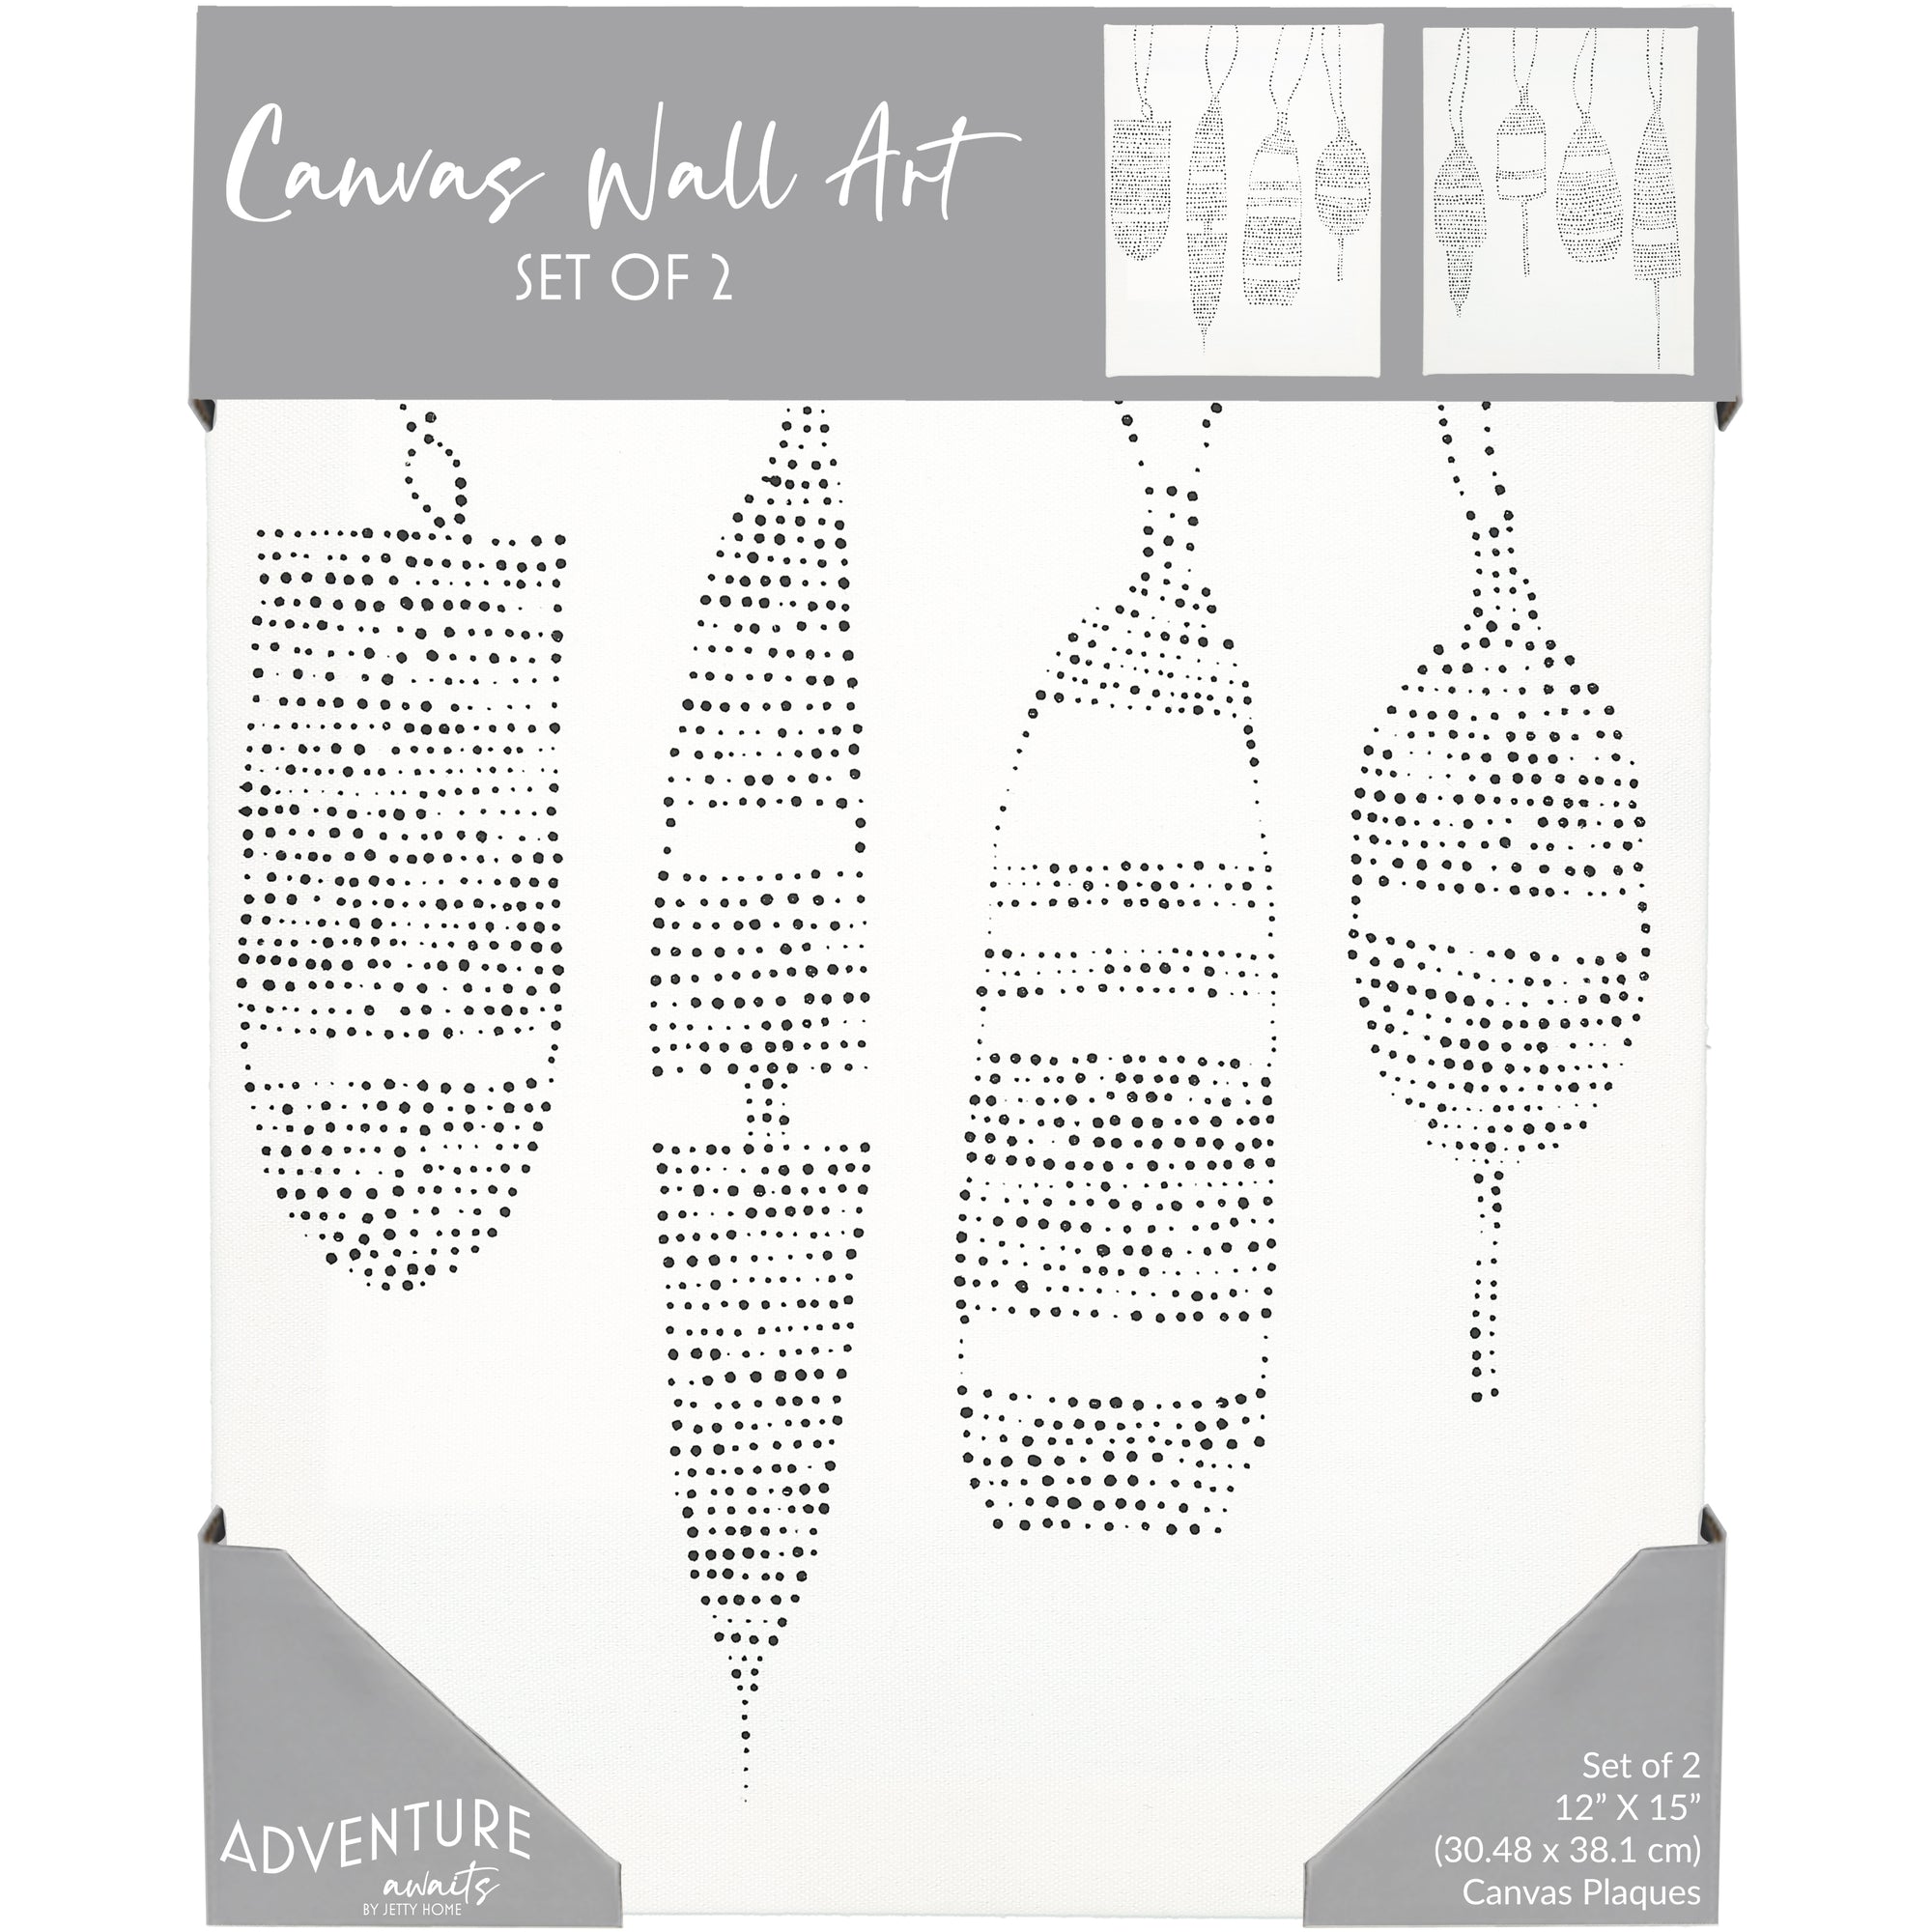 Canvas Wall Art
SET OF 2
ADVENTURE
awaits
BY JETTY HOME
Set of 2
12” X 15”
(30.48 x 38.1 cm)
Canvas Plaques